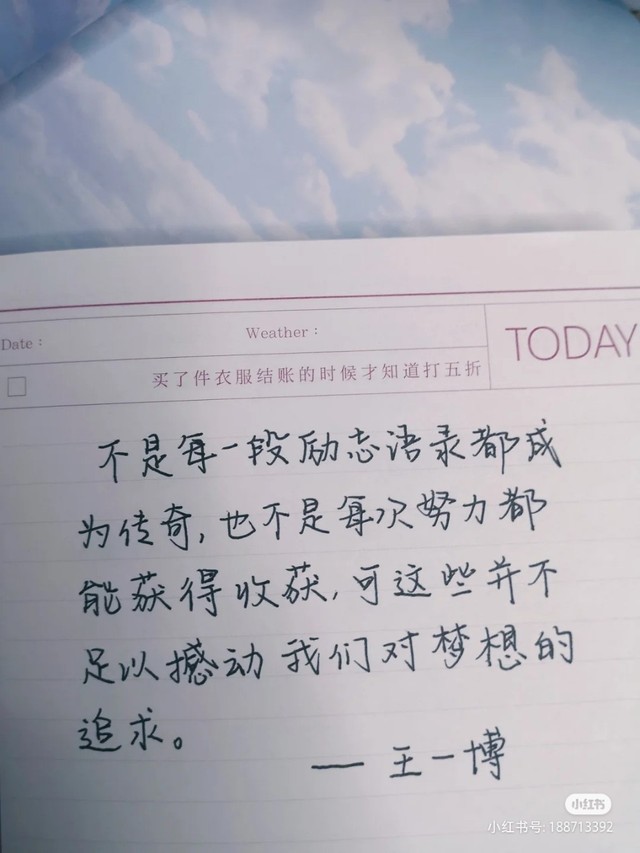 Date：
Weather：
TODAY
买了件衣服结账的时候才知道打五折
不是每一段励志语录都成
为传奇，也不是每次努力都
能获得收获，可这些并不
足以撼动我们对梦想的
追求。
—— 王一博
小红书
小红书号: 188713392